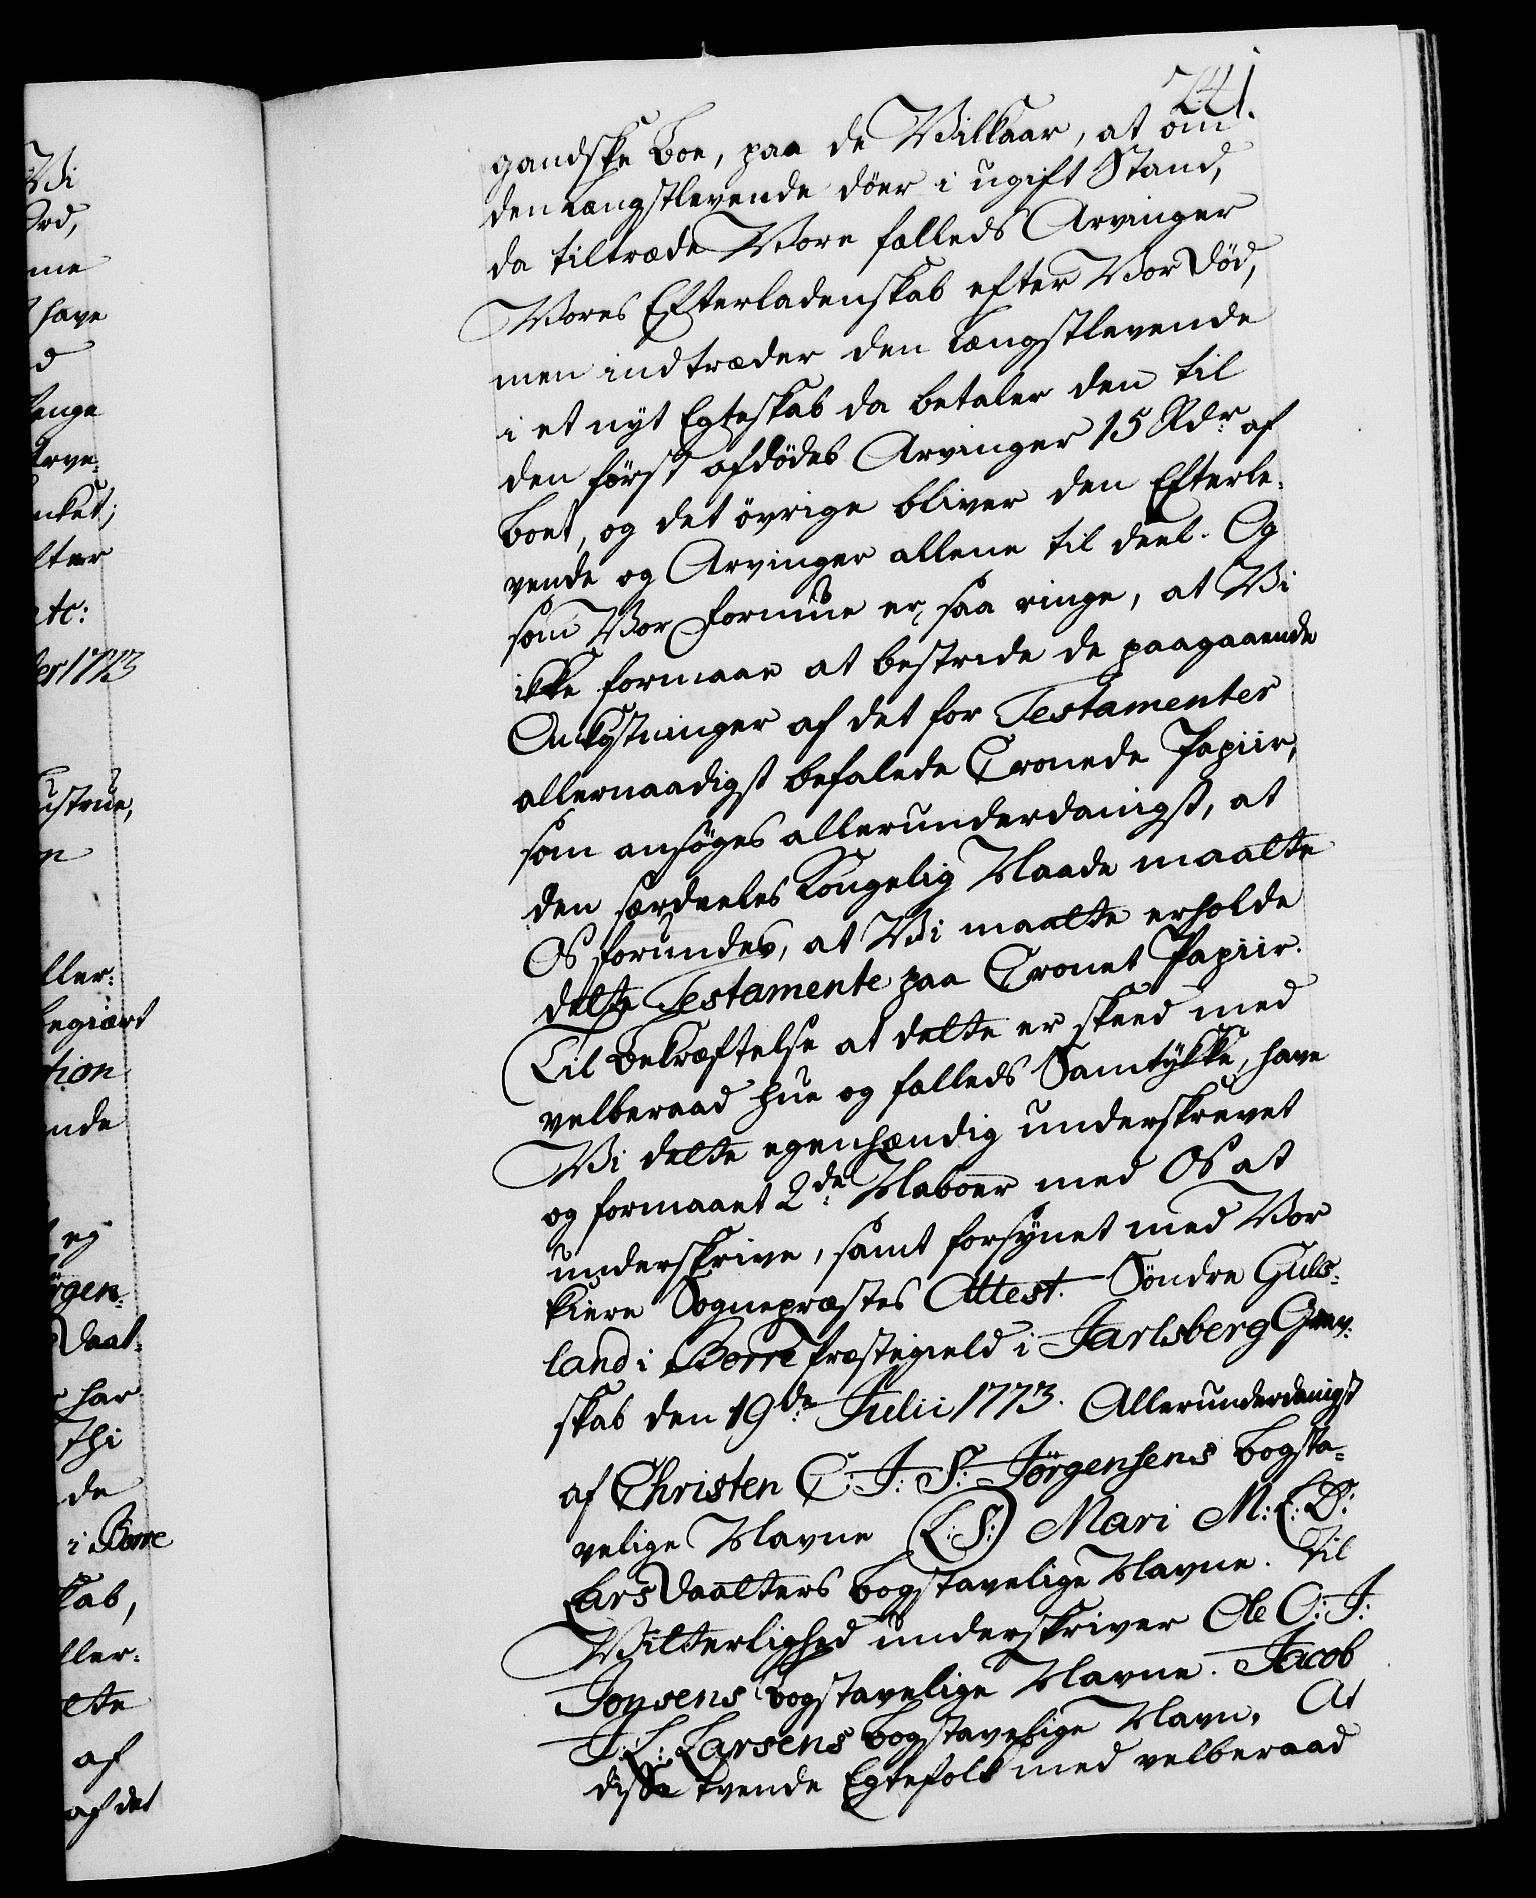 741.
gandske Boe, paa de Vilkaar, at om
den Længstlevende döer i ugift Stand,
da tiltræde Vore fælleds Arvinger
Vores Efterladenskab efter Vor Död,
men indtræder den Længstlevende
i et nyt Egteskab da betaler den til
den först afdödes Arvinger 15 Rdr af
Boet, og det övrige bliver den Efterle-
vende og Arvinger allene til deel. Og
som Vor Formue er saa ringe, at Vi
ikke formaae at bestride de paagaaende
Omkostninger af det for Testamenter
allernaadigst befalede Cronede Papiir,
som ansöges allerunderdanigst, at
den særdeeles Kongelig Naade maatte
Os forundes, at Vi maatte erholde
dette Testamente paa Cronet Papiir.
Til Bekræftelse at dette er skeed med
velberaad Hue og fælleds Samtykke, have
Vi dette egenhændig underskrevet
og formaaet 2de Naboer med Os at
underskrive, samt forsynet med Vor
kiere Sognepræstes Attest. Söndre Guls-
land i Borre Præstegield i Jarlsberg Grev-
skab den 19de Julii 1773. Allerunderdanigst
af Christen C: J: S: Jörgensens bogsta-
velige Navne (L:S:) Mari M: L: D:
Lars Daatters bogstavelige Navne. Til
Vitterlighed underskriver Ole O: J:
Jonsens bogstavelige Navne. Jacob
J: L: Larsens bogstavelige Navn. At
disse tvende Egtefolk med velberaad
Vi
Ord,
me
have
d
længe
Arve-
nket;
fter
etc:
der 1773
Hustrue,
n
ller-
begiært
tion
nde
eg
örgen-
Daat-
har
thi
de
i Borre
kab,
ller-
tte
af
af det